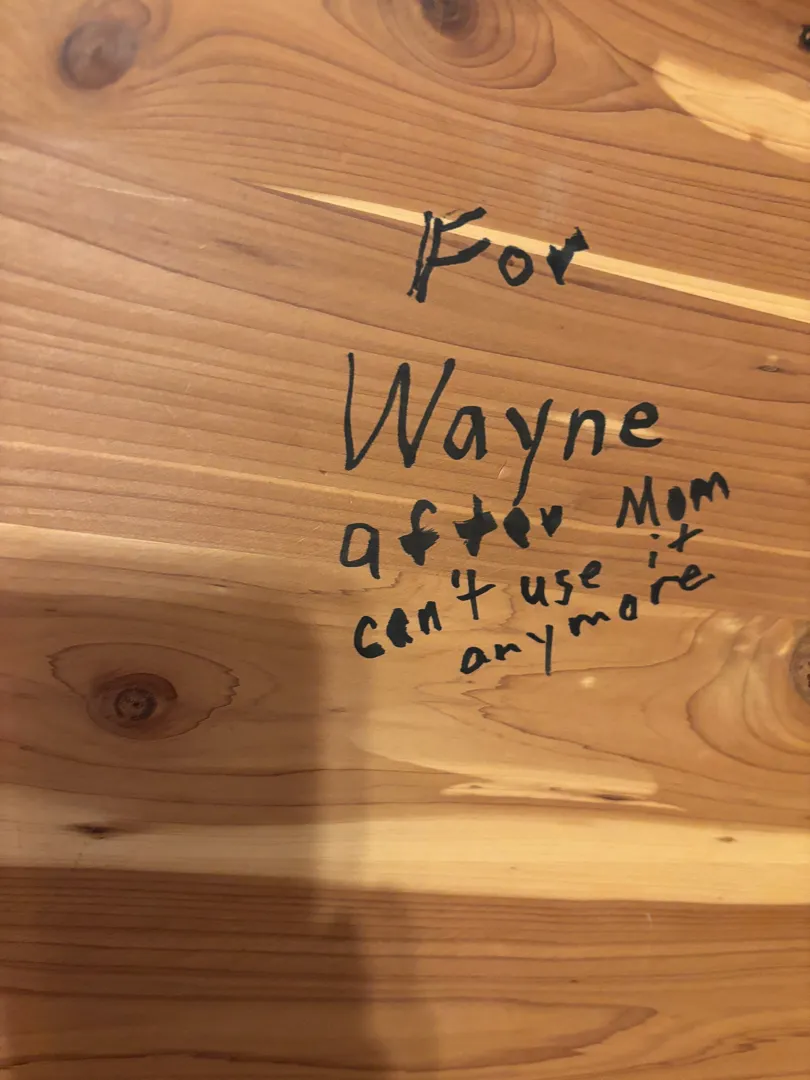 For
Wayne
after Mom
can't use it
anymore